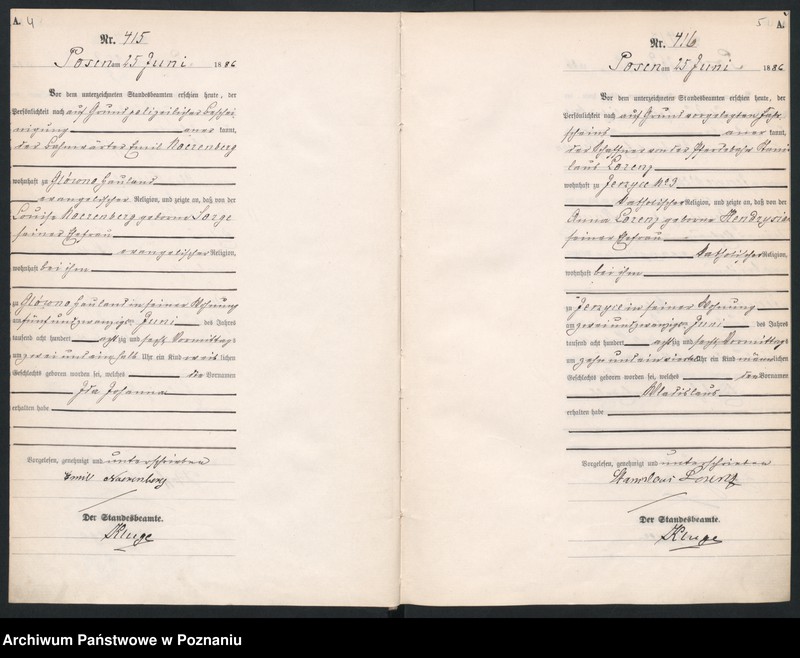 A. 4
Nr. 415
Posen am 25 Juni 1886
Vor dem unterzeichneten Standesbeamten erschien heute, der
Persönlichkeit nach auf Grund polizeilicher Beschei-
nigung anerkannt,
des Bahnwärters Emil Kaerenberg
wohnhaft zu Glówno Hauland
evangelischer Religion, und zeigte an, daß von der
Louise Kaerenberg geborne Lange
seiner Ehefrau
evangelischer Religion,
wohnhaft bei ihm
zu Glówno Hauland in seiner Wohnung
am fünfundzwanzigsten Juni des Jahres
tausend acht hundert achtzig und sechs Vormittags
um zwei und ein halb Uhr ein Kind weiblichen
Geschlechts geboren worden sei, welches die Vornamen
Ida Johanna
erhalten habe
Vorgelesen, genehmigt und unterschrieben
Emil Kaerenberg
Der Standesbeamte.
Kluge
5 A.
Nr. 416
Posen am 25 Juni 1886
Vor dem unterzeichneten Standesbeamten erschien heute, der
Persönlichkeit nach auf Grund vorgelegten
scheins anerkannt,
der Schaffner von der Pferdebahn Stanis
laus Lorenz
wohnhaft zu Jerzyce No 3
katholischer Religion, und zeigte an, daß von der
Anna Lorenz geborne
seiner Ehefrau
katholischer Religion,
wohnhaft bei ihm
zu Jerzyce in seiner Wohnung
am zweiundzwanzigsten Juni des Jahres
tausend acht hundert achtzig und sechs Vormittags
um zehn und ein viertel Uhr ein Kind männlichen
Geschlechts geboren worden sei, welches den Vornamen
Wladislaus
erhalten habe
Vorgelesen, genehmigt und unterschrieben
Stanislaus Lorenz
Der Standesbeamte.
Kluge
Archiwum Państwowe w Poznaniu